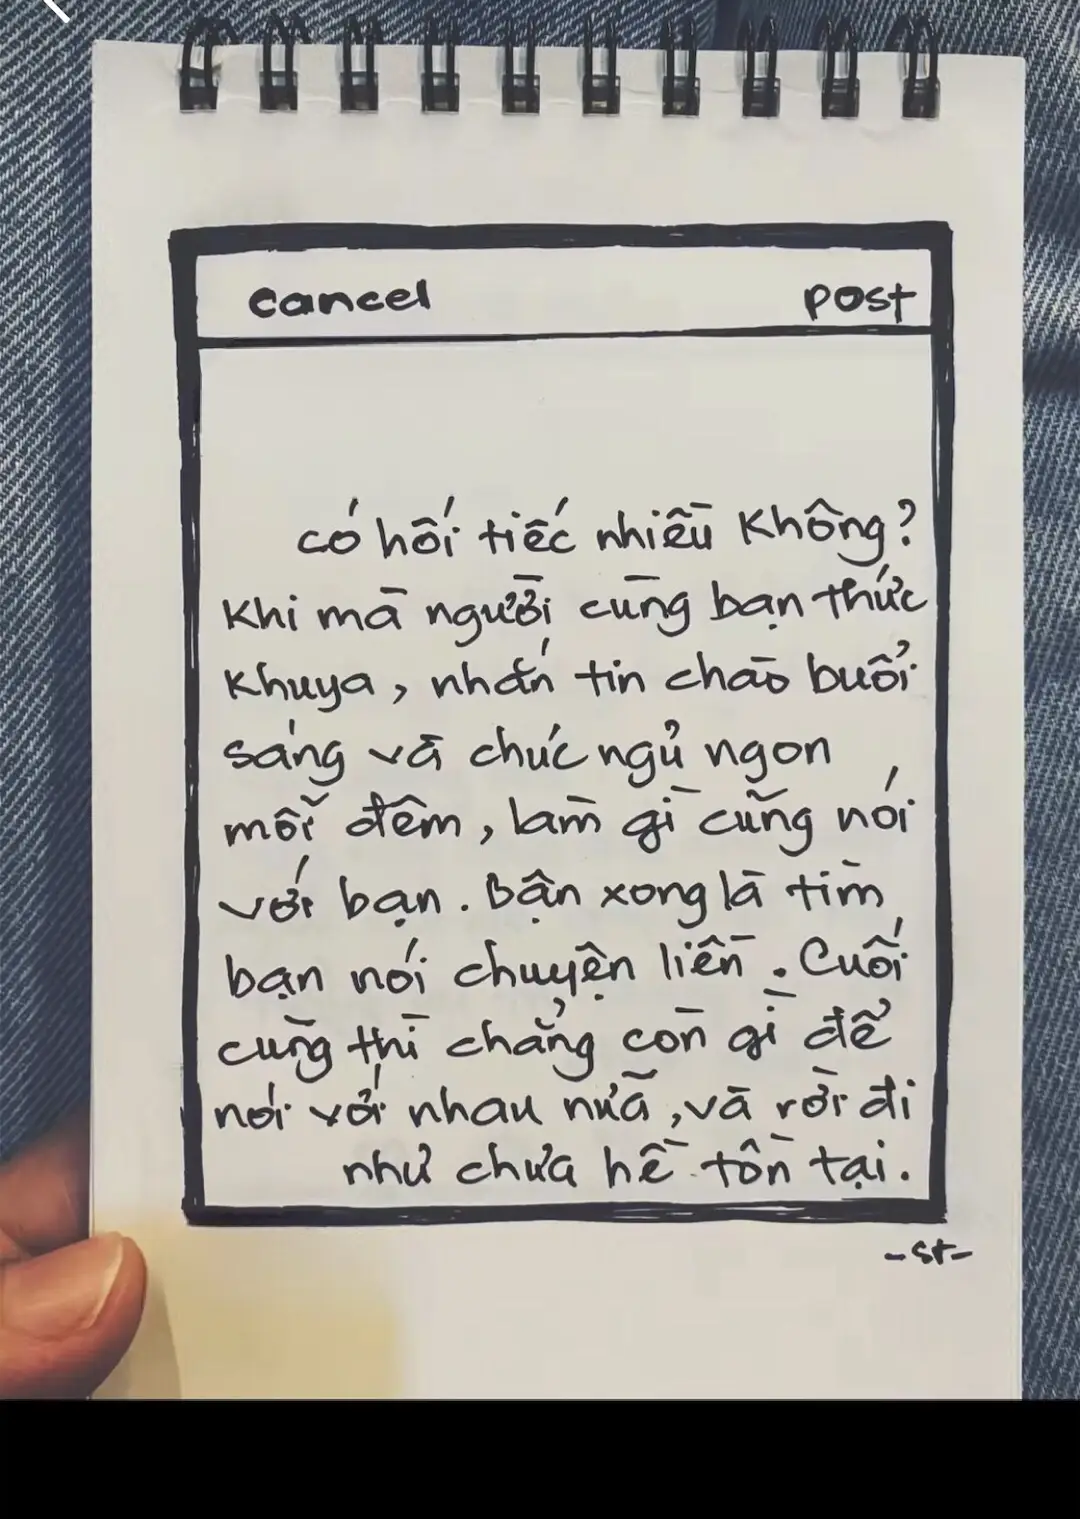 cancel post
có hối tiếc nhiều không?
Khi mà người cùng bạn thức
khuya, nhắn tin chào buổi
sáng và chúc ngủ ngon
mỗi đêm, làm gì cũng nói
với bạn. Bận xong là tìm
bạn nói chuyện liền. Cuối
cùng thì chẳng còn gì để
nói với nhau nữa, và rời đi
như chưa hề tồn tại.
-st-